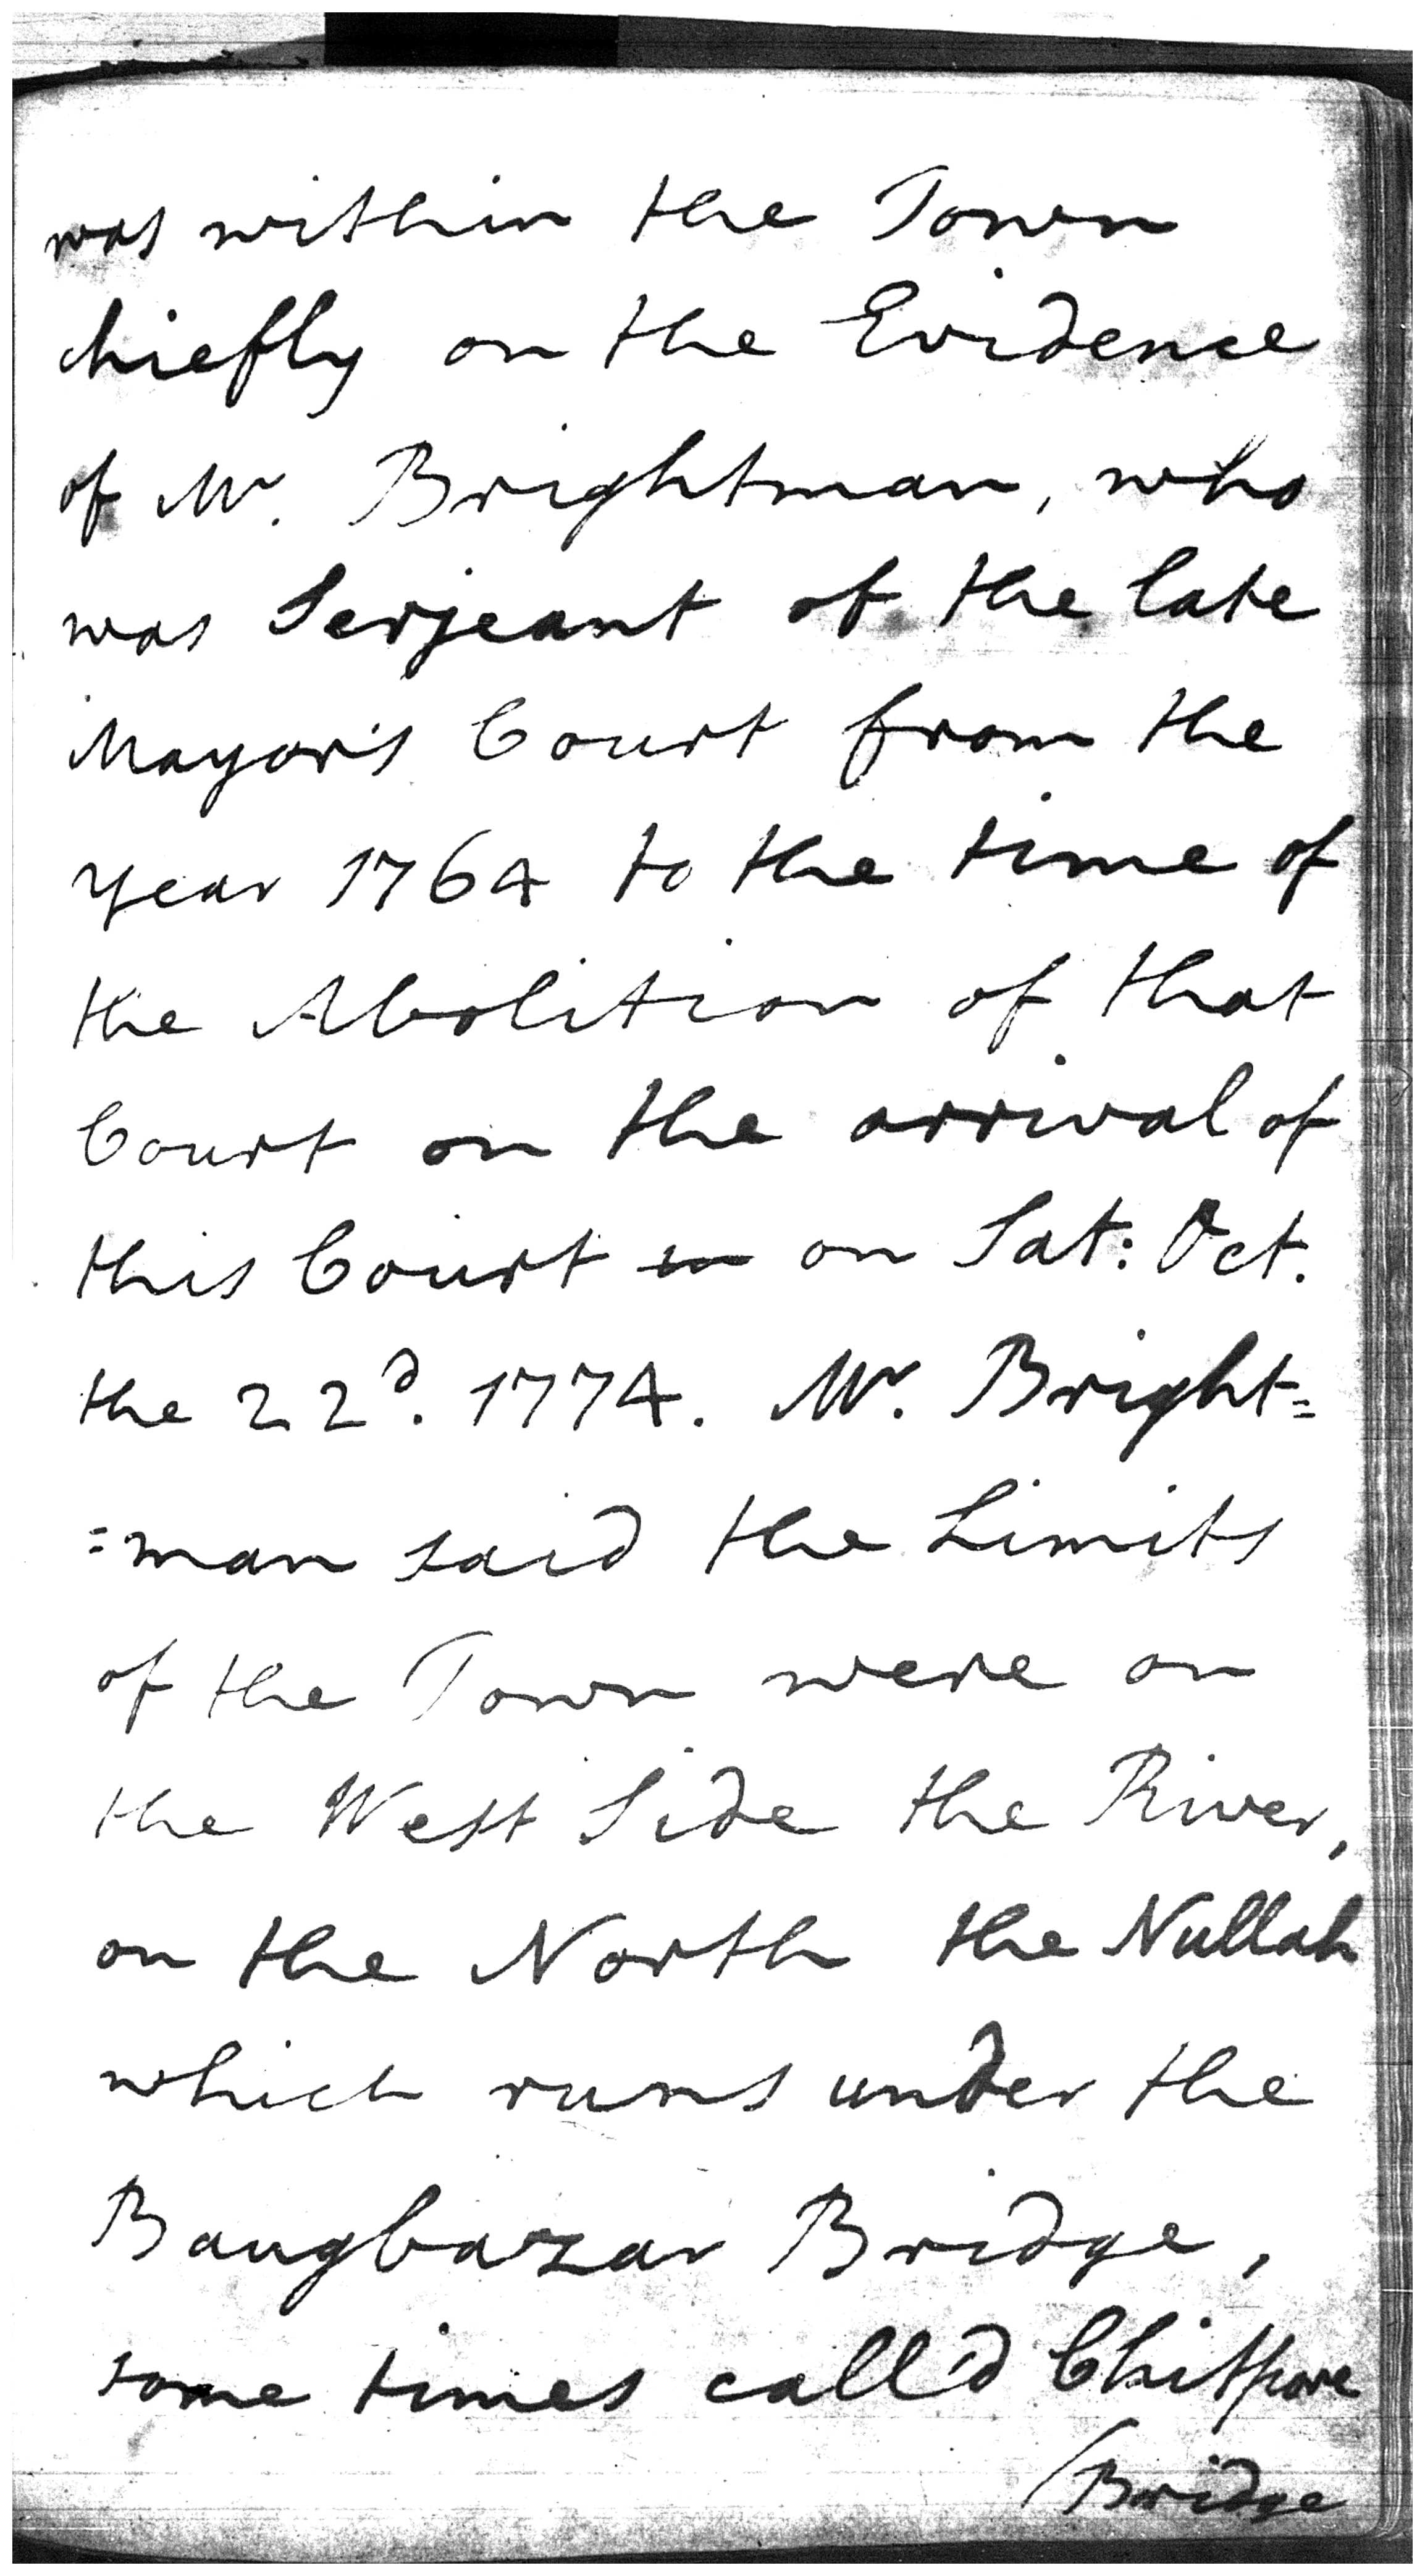 was within the Town
chiefly on the Evidence
of Mr. Brightman, who
was Serjeant of the late
Mayor's Court from the
year 1764 to the time of
the Abolition of that
Court on the arrival of
this Court in on Sat: Oct.
the 22d. 1774. Mr. Bright=
=man said the Limits
of the Town were on
the West Side the River,
on the North the Nullah
which runs under the
Baugbazar Bridge,
some times call'd Chitpore
/Bridge